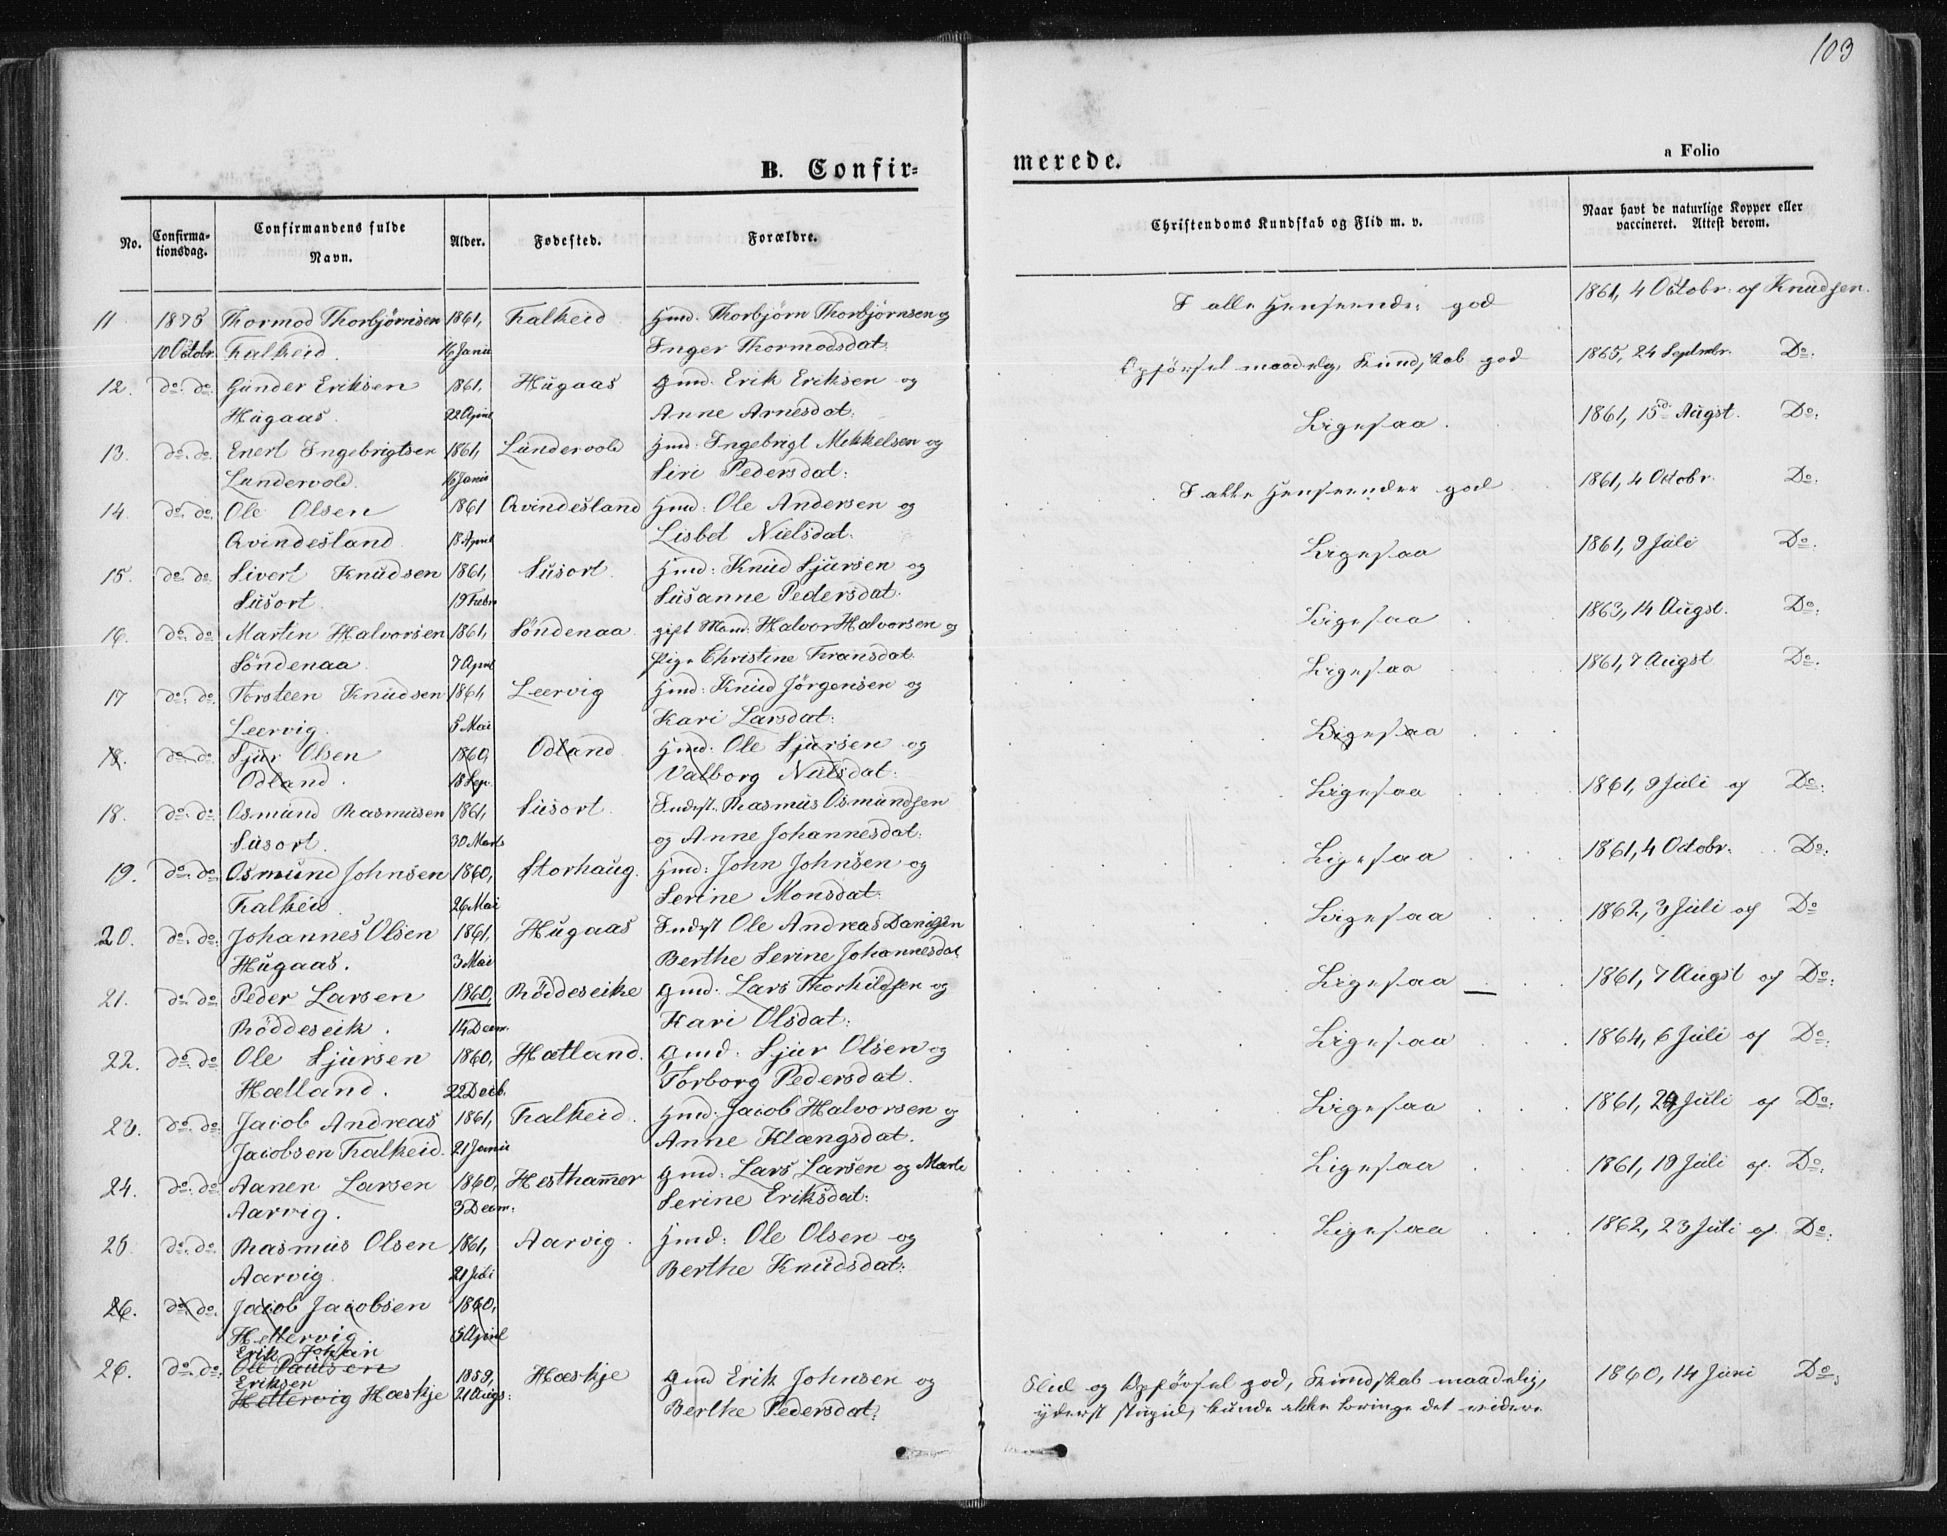 103
B. Confirmerede.
a Folio
No. Confirmationsdag. Confirmandens fulde Navn. Alder. Fødested. Forældre. Christendoms Kundskab og Flid m. v. Naar havt de naturlige Kopper eller vaccineret. Attest derom.
11 1875 Thormod Thorbjörnsen 1861, Falkeid Hmd. Thorbjörn Thorbjörnsen og I alle Henseender god 1861, 4 Octobr. af Knudsen.
10 Octobr. Falkeid. 16 Janu Inger Thormodsdat:
12. do. do. Gunder Eriksen 1861, Hugaas Gmd. Erik Eriksen og Opförsel maadelig, Kundskab god 1865, 24 Septmbr. Do.
Hugaas. 22 April Anne Arnesdat:
13. do. do. Enert Ingebrigtsen 1861, Lundervold Hmd: Ingebrigt Mikkelsen og Ligesaa. 1861, 15d. Augst. Do:
Lundervold. 16 Janu Siri Pedersdat:
14. do. do. Ole Olsen 1861 Qvindesland Hmd: Ole Andersen og I alle Henseender god 1861, 4 Octobr. Do:
Qvindesland 18 April Lisbet Nielsdat:
15. do. do Sivert Knudsen 1861, Susort. Hmd: Knud Sjursen og Ligesaa 1861, 9 Juli Do:
Susort. 19 Febr Susanne Pedersdat.
16. do. do Martin Halvorsen 1861, Söndenaa. gift Mand. Halvor Halvorsen og Ligesaa 1863, 14 Augst. Do:
Söndenaa. 7 April Pige Christine Fransdat.
17 do. do. Torsteen Knudsen 1861 Leervig Hmd: Knud Jörgensen og Ligesaa 1861, 7 Augst Do:
Leervig. 5 Mai Kari Larsdat:
18. do. do. Sjur Olsen 1860, Odland. Hmd: Ole Sjursen og Ligesaa
Odland. 18 Sep. Valborg Nielsdat:
18. do. do. Osmund Rasmusen 1861, Susort. Inderst. Rasmus Osmundsen Ligesaa 1861, 9 Juli af Do:
Susort. 30 Marts og Anne Johannesdat:
19. do. do. Osmund Johnsen 1860, Storhaug. Hmd: John Johnsen og Ligesaa 1861, 4 Octobr. Do:
Falkeid 26 Mai Serine Monsdat:
20. do. do: Johannes Olsen 1861, Hugaas Inderst Ole Andreas Danielsen Ligesaa 1862, 3 Juli af Do
Hugaas. 3 Mai Berthe Serine Johannesdat
21. do. do: Peder Larsen 1860, Röddeseike Gmd. Lars Thorhildsen og Ligesaa 1861, 7 Augst af Do:
Röddeseik. 14 Decm. Kari Olsdat:
22. do. do: Ole Sjursen 1860, Hætland. Gmd. Sjur Olsen og Ligesaa 1864, 6 Juli af Do:
Hætland. 22 Decb. Torborg Pedersdat.
23. do. do: Jacob Andreas 1861, Falkeid. Hmd: Jacob Halvorsen og Ligesaa 1861, 24 Juli af Do:
Jacobsen Falkeid. 21 Janu Anne Klængsdat.
24. do. do: Aanen Larsen 1860, Hesthammer Gmd: Lars Larsen og Marte Ligesaa 1861, 19 Juli af. Do:
Aarvig. 3 Decm: Serine Eriksdat:
25 do. do: Rasmus Olsen 1861, Aarvig. Hmd: Ole Olsen og Ligesaa 1862, 23 Juli af. Do:
Aarvig. 21 Juli Berthe Knudsdat:
26. do. do. Jacob Jacobsen 1860,
Hettervig. 5 April
Erik Johan
26. do. do: Ole Paulsen 1859, Hæskje Gmd Erik Johnsen og Flid og Opförsel god, Kundskab maadelig, 1860, 14 Juni Do:
Eriksen
Hettervig Hæskje 21 Augs: Berthe Pedersdat: yderst stupid, kunde ikke bringe det videre